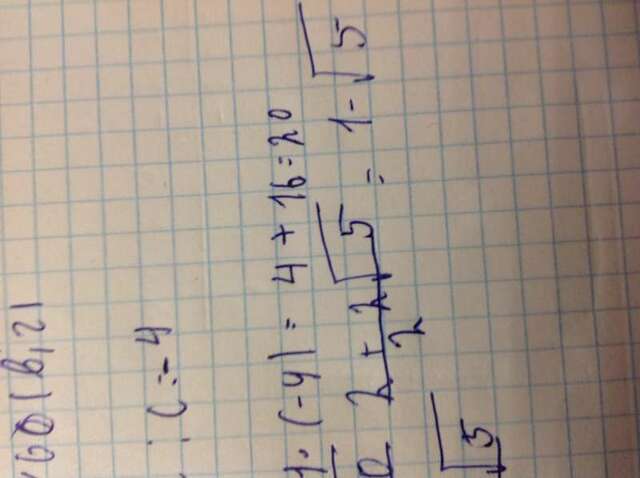 660 (в, г)
; c = -4
1 · (-4) = 4 + 16 = 20
0 2 + 2√5 / 2 = 1 - √5
√5